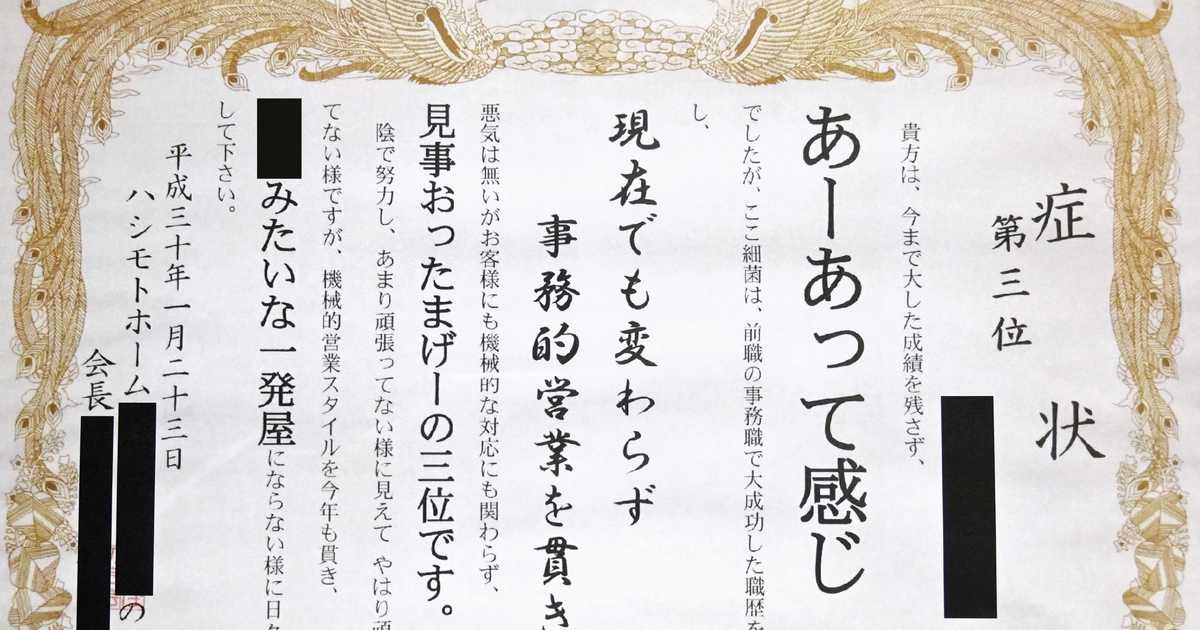 症状
第三位
貴方は、今まで大した成績を残さず、
あーあって感じ
でしたが、ここ細菌は、前職の事務職で大成功した職歴を
し、
現在でも変わらず
事務的営業を貫き
悪気は無いがお客様にも機械的な対応にも関わらず、
見事おったまげーの三位です。
陰で努力し、あまり頑張ってない様に見えて やはり頑
てない様ですが、機械的営業スタイルを今年も貫き、
みたいな一発屋にならない様に日々
して下さい。
平成三十年一月二十三日
ハシモトホーム の
会長